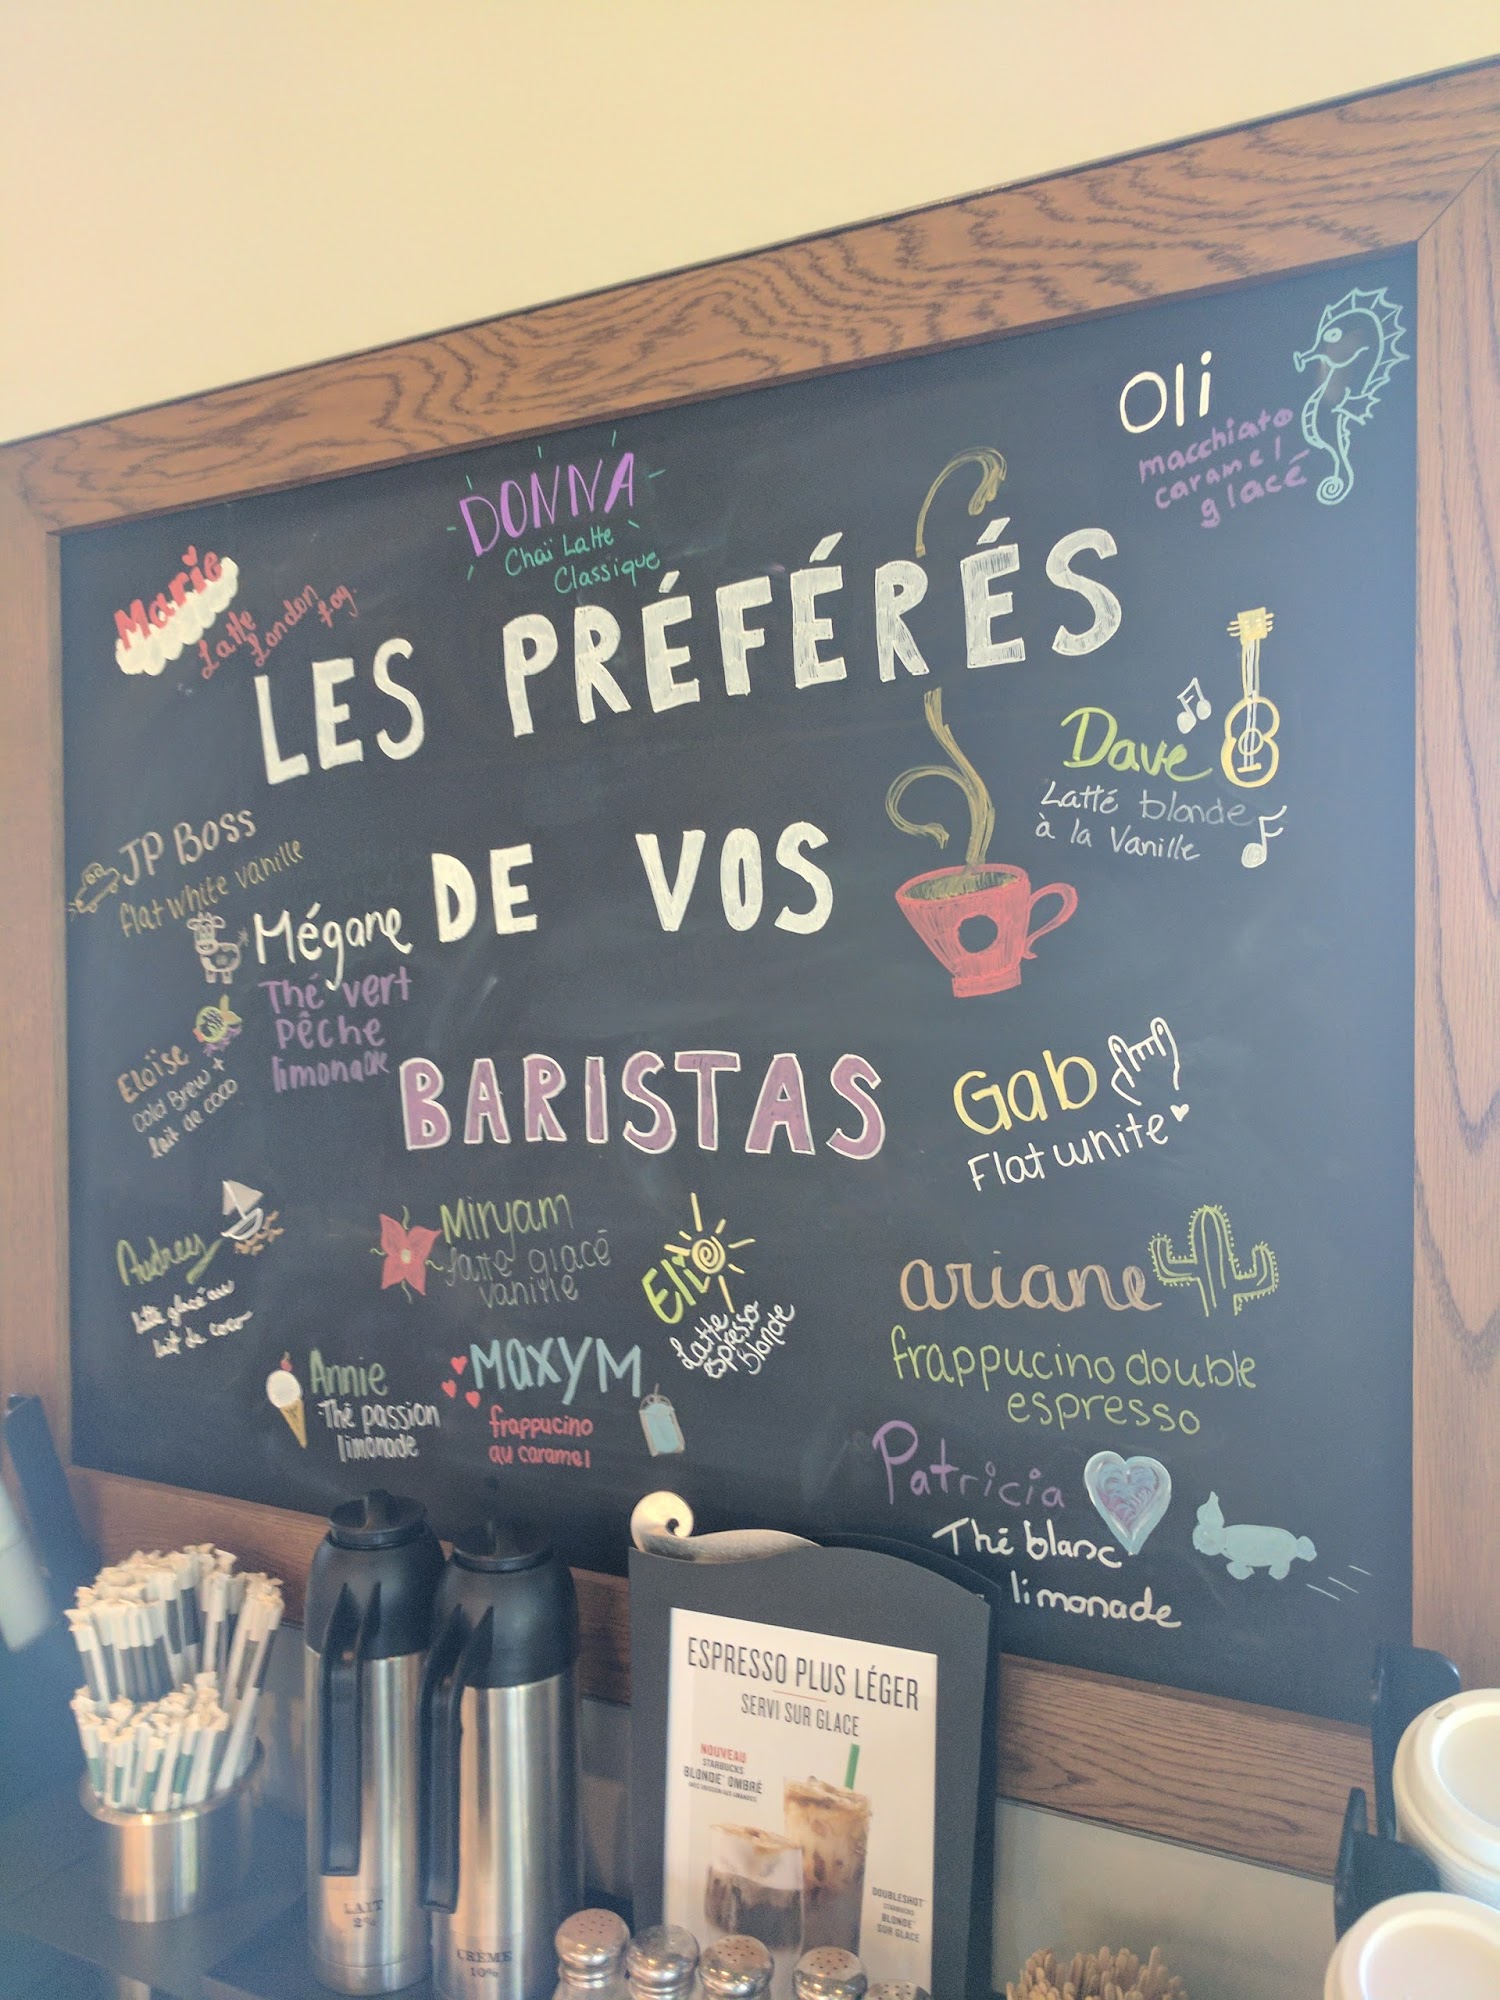 DONNA
Chaï Latte
Classique
Oli
macchiato
caramel
glacé
Marie
Latte
London
Fog
LES PRÉFÉRÉS
DE VOS
BARISTAS
Dave
Latté blonde
à la Vanille
JP BOSS
flat white vanille
Mégane
Thé vert
pêche
limonade
Eloïse
Cold Brew +
lait de coco
Gab
Flat white
Audrey
latte glacé au
lait de coco
Miryam
latte glacé
vanille
Eli
Latte
espresso
Blonde
ariane
frappucino double
espresso
Annie
Thé passion
limonade
MAXYM
frappucino
au caramel
Patricia
Thé blanc
limonade
ESPRESSO PLUS LÉGER
SERVI SUR GLACE
NOUVEAU
STARBUCKS
BLONDE OMBRÉ
DOUBLESHOT
STARBUCKS
BLONDE
SUR GLACE
LAIT
2%
CRÈME
10%